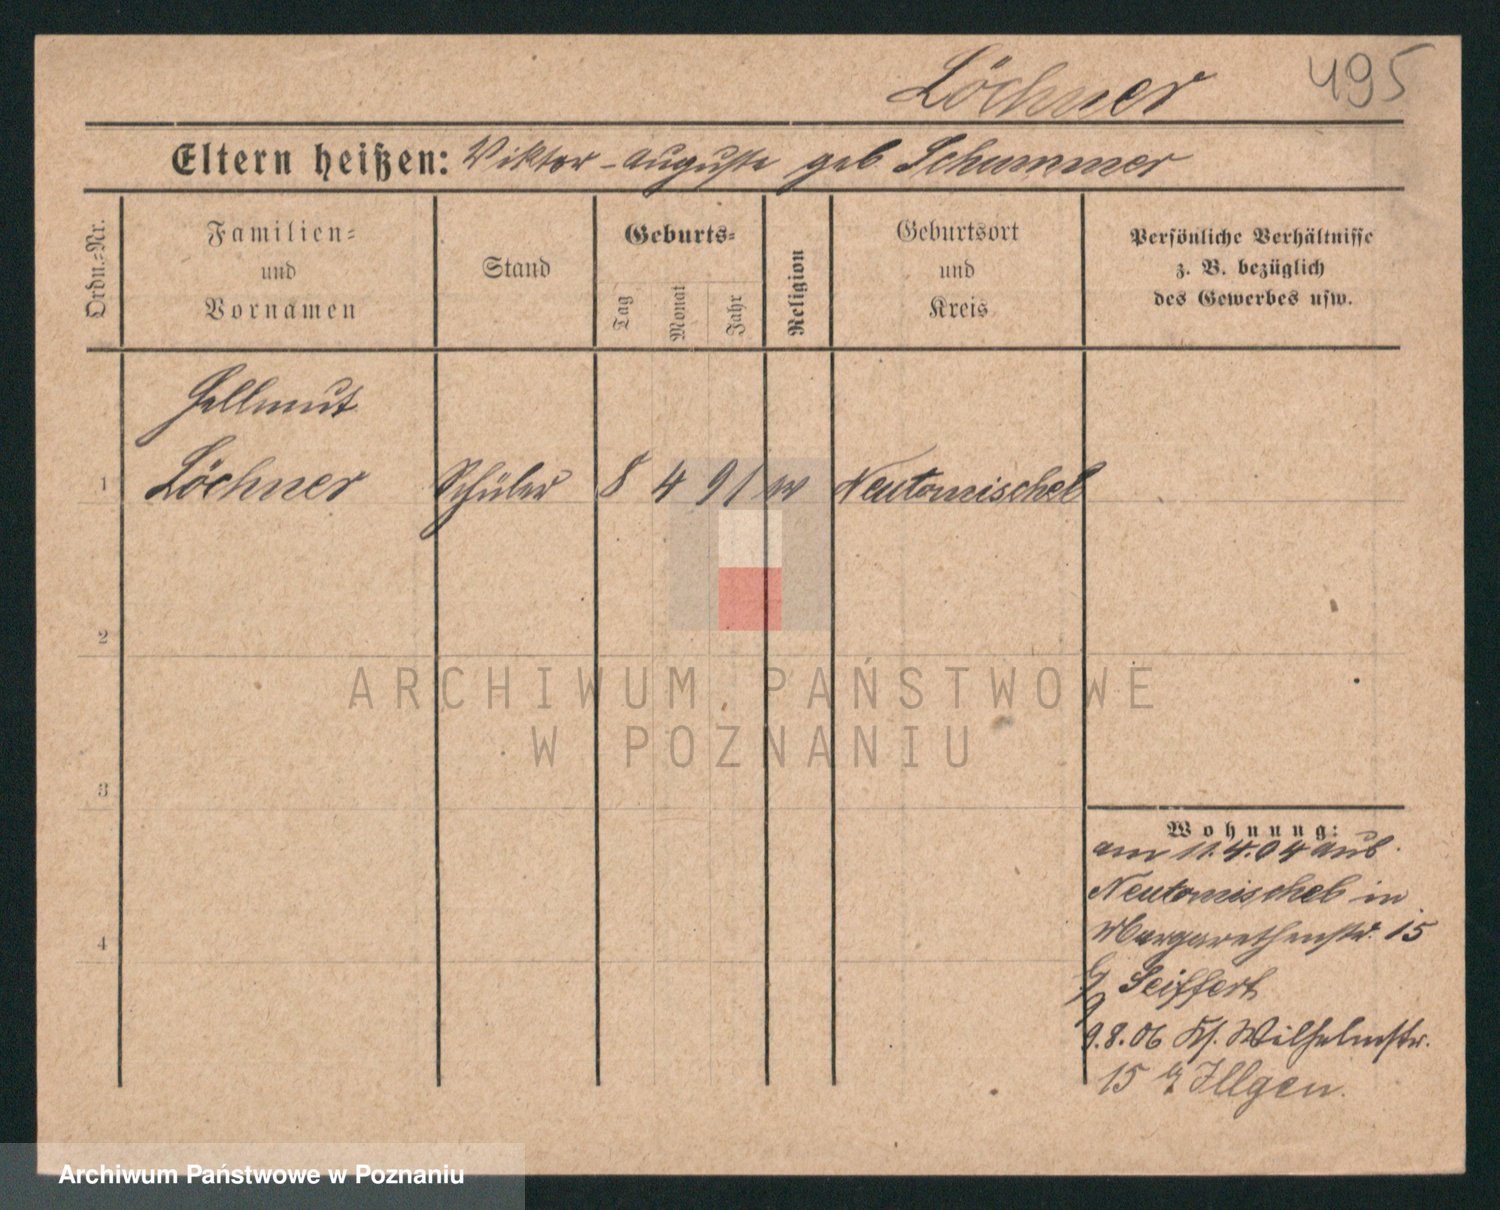 Löchner 495
Eltern heißen: Viktor - Auguste geb Schummer
Ordn.=Nr.
Familien=
und
Vornamen
Stand
Geburts=
Tag
Monat
Jahr
Religion
Geburtsort
und
Kreis
Persönliche Verhältnisse
z. B. bezüglich
des Gewerbes usw.
Hellmut
1 Löchner Schüler 8 4 91 Neutomischel
2
3
4
Wohnung:
am 11.4.04 aus
Neutomischel in
Margarethenstr. 15
Seiffert
9.8.06 Kl. Wilhelmstr.
15 Illgen.
ARCHIWUM PAŃSTWOWE
W POZNANIU
Archiwum Państwowe w Poznaniu